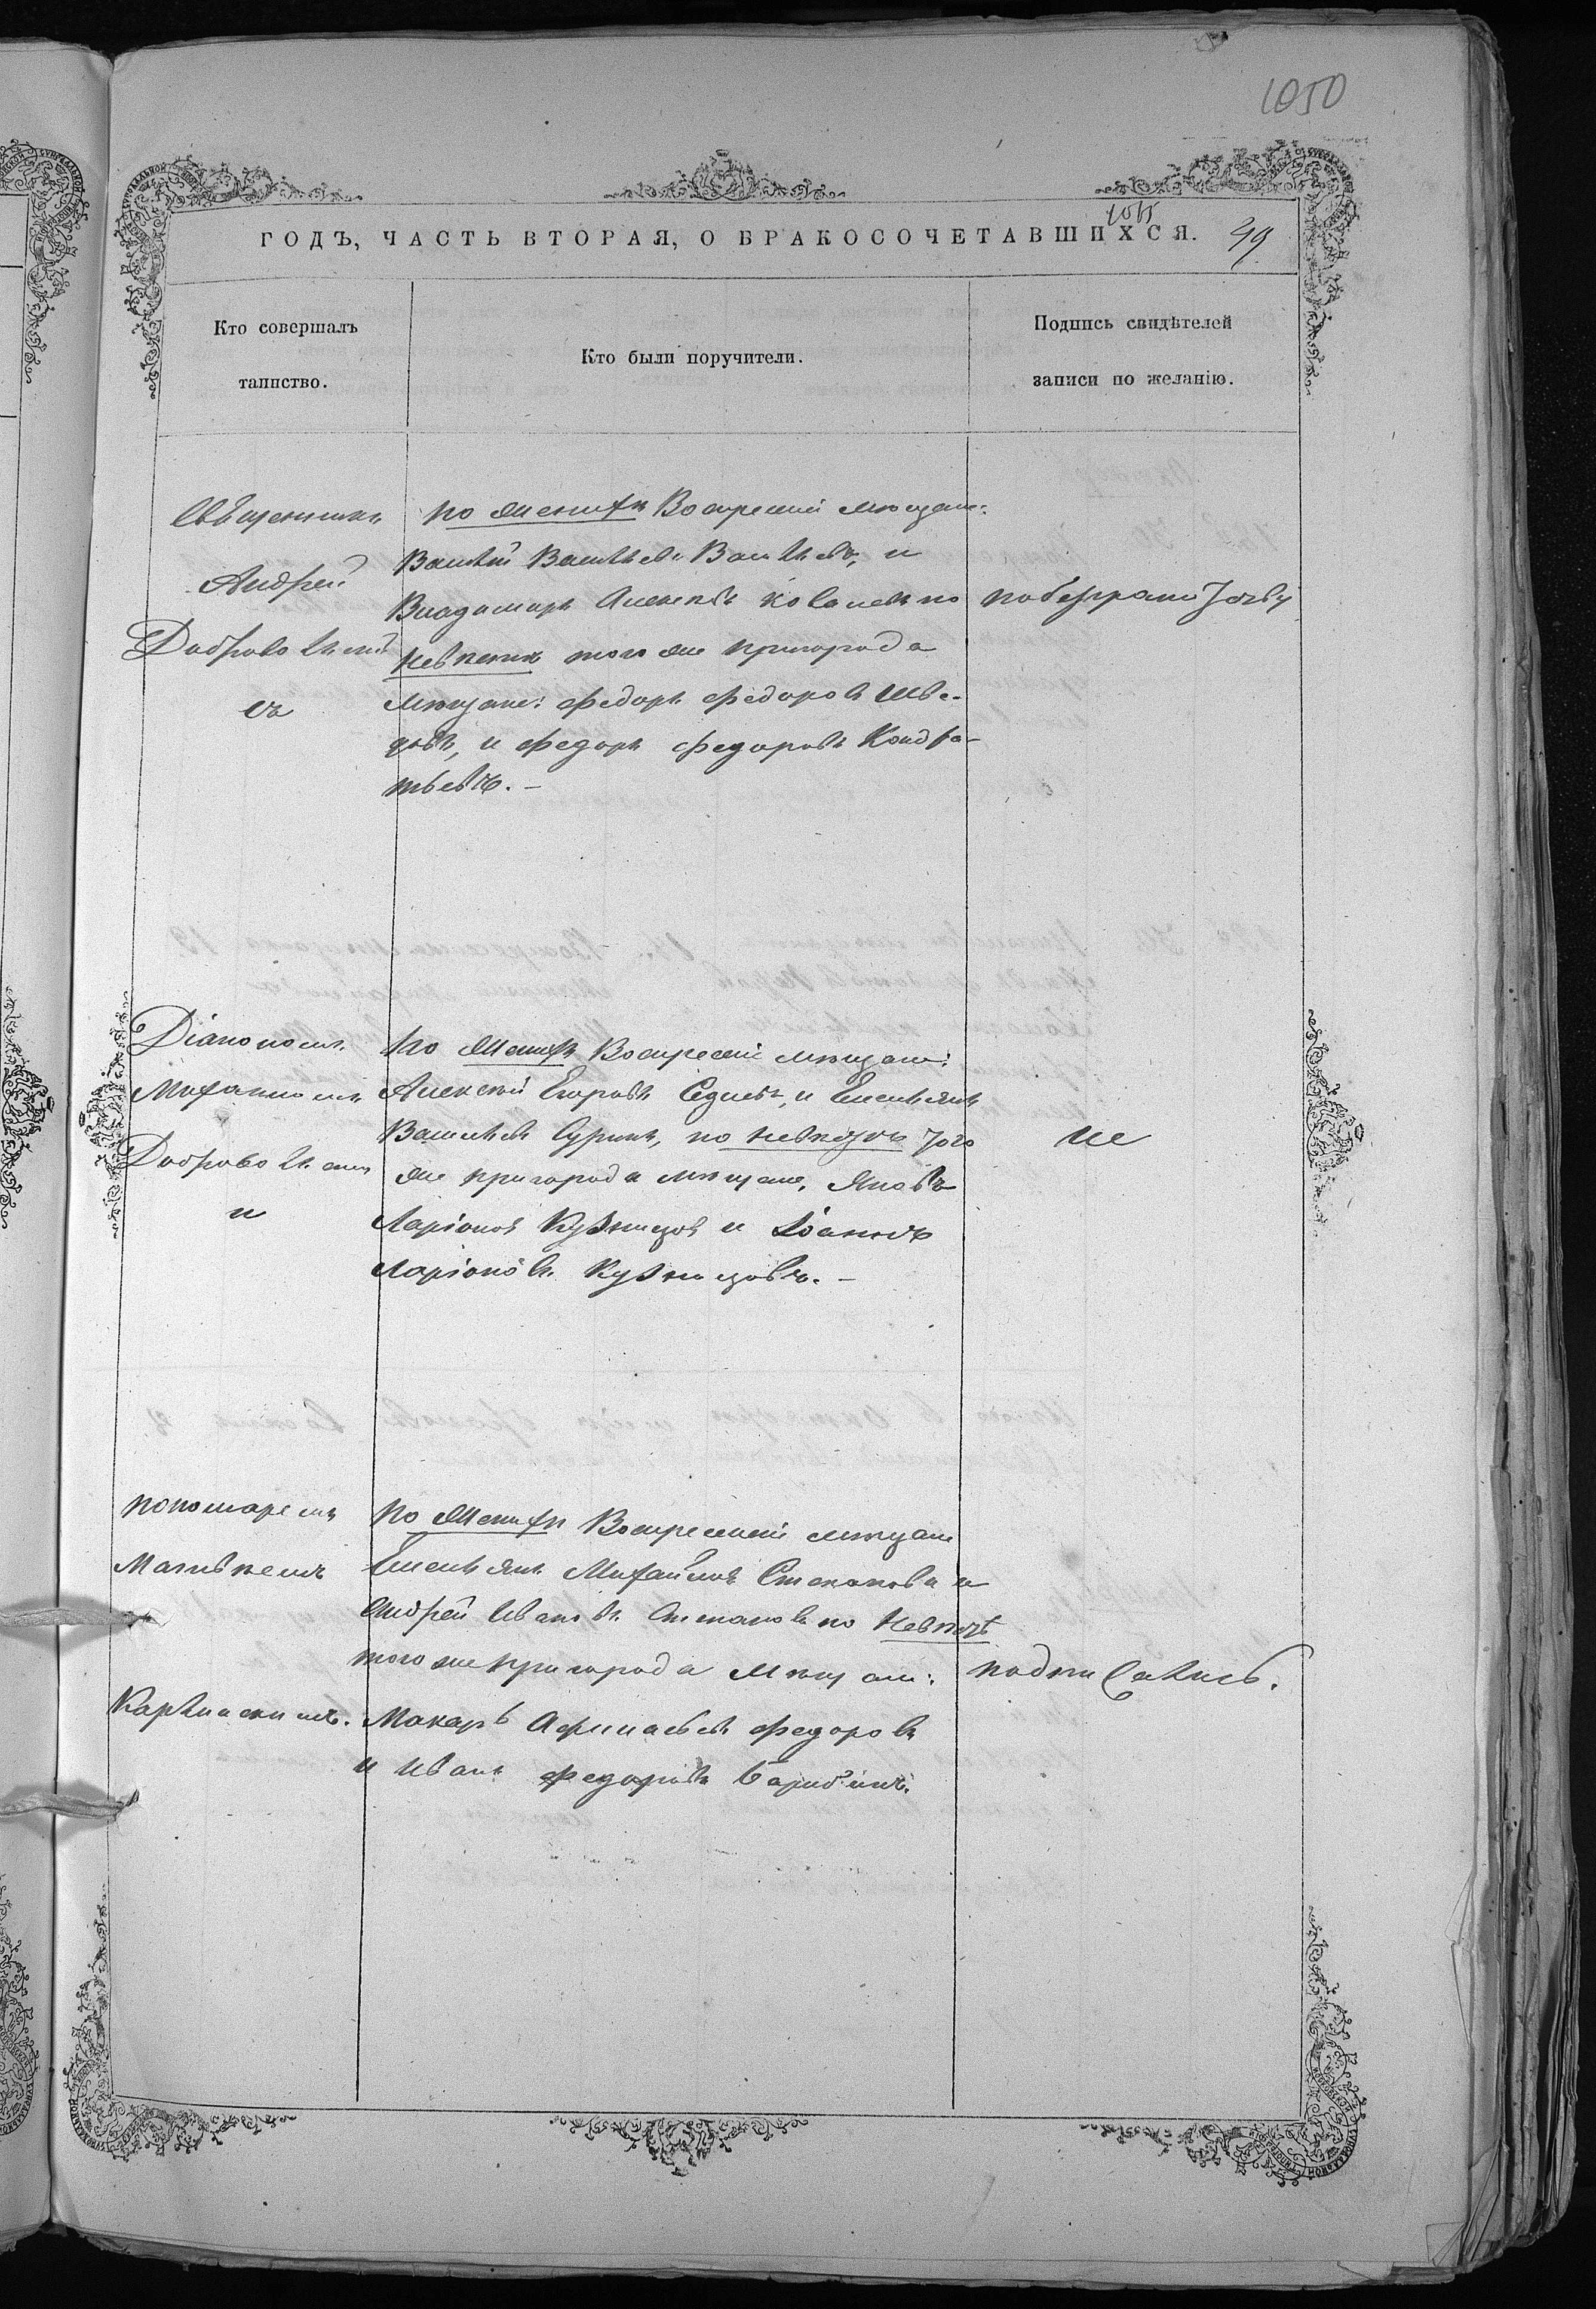 1050
1015
ГОДЪ, ЧАСТЬ ВТОРАЯ, О БРАКОСОЧЕТАВШИХСЯ. 49
Кто совершалъ
таинство.
Кто были поручители.
Подпись свидѣтелей
записи по желанію.
Священникъ
Андрей
Добровольскій
съ
по женихѣ Воскресенскій мѣщане:
Василій Васильевъ Васильевъ, и
Владимиръ Алексѣевъ Ковалевъ по
невѣстѣ того же пригорода
мѣщане: Федоръ Федоровъ Шве-
цовъ, и Федоръ Федоровъ Кондра-
тьевъ. –
Діакономъ
Добровольскимъ
и
По женихѣ Воскресенскіе мѣщане:
Алексѣй Егоровъ Седневъ, и Емельянъ
Васильевъ Суринъ, по невѣстѣ того
же пригорода мѣщане, Яковъ
Ларіоновъ Кузнецовъ и Іоаннъ
Ларіоновъ Кузнецовъ. –
не
пономаремъ
Матвѣемъ
По женихѣ Воскресенскіе мѣщане
Емельянъ Михайловъ Степановъ и
Андрей Ивановъ Степановъ по невѣстѣ
того же пригорода мѣщане:
Макаръ Афанасьевъ Федоровъ
и Иванъ Федоровъ Барабинъ.
подписались.